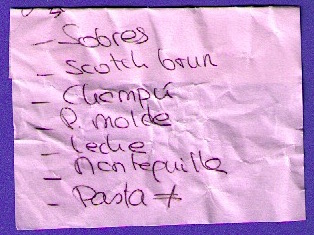 - Sobres
- scotch brun
- Champú
- P. molde
- Leche
- Mantequilla
- Pasta +